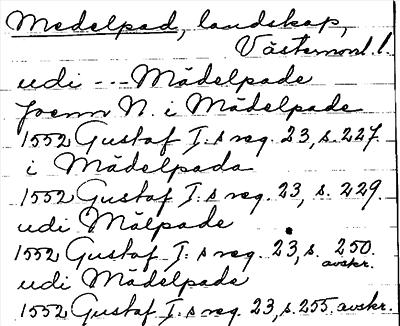 Medelpad, landskap,
Västernorrl. l.
udi --- Mädelpade
Joenn N. i Mädelpade
1552 Gustaf I:s reg. 23, s. 227.
i Mädelpada
1552 Gustaf I:s reg. 23, s. 229.
udi Mälpade
1552 Gustaf I:s reg. 23, s. 250.
avskr.
udi Mädelpade
1552 Gustaf I:s reg. 23, s. 255. avskr.